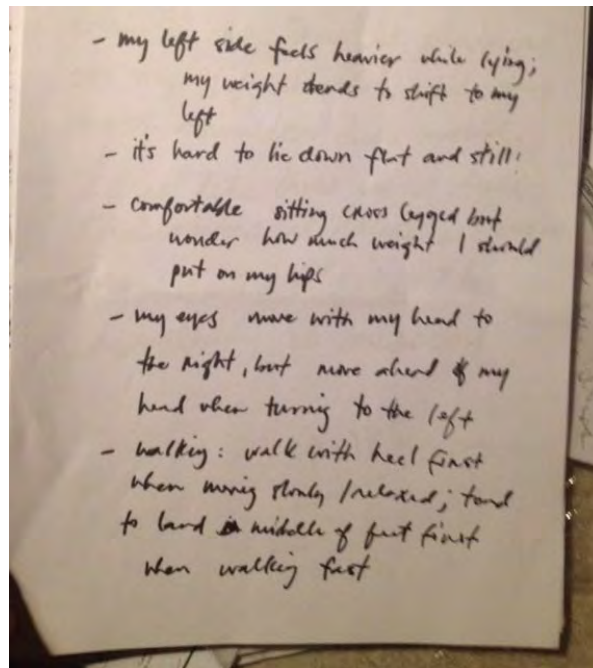 - my left side feels heavier while lying;
my weight tends to shift to my
left
- it's hard to lie down flat and still.
- comfortable sitting cross legged but
wonder how much weight I should
put on my hips
- my eyes move with my head to
the right, but move ahead of my
head when turning to the left
- walking: walk with heel first
when moving slowly / relaxed; tend
to land in middle of feet first
when walking fast